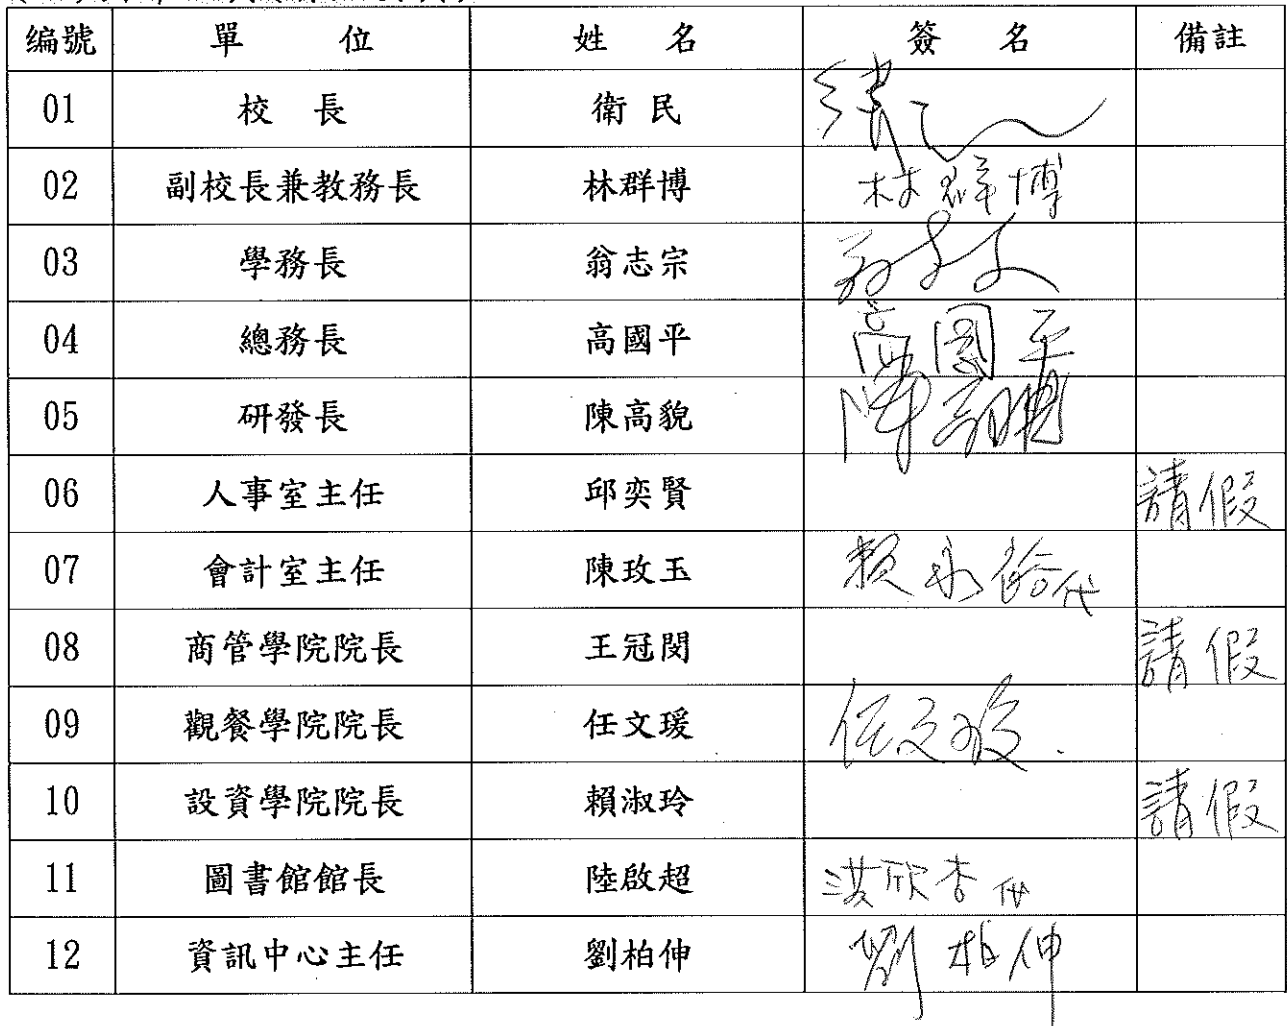 编號 單位 姓名 簽名 備註
01 校長 衛民
02 副校長兼教務長 林群博 林群博
03 學務長 翁志宗
04 總務長 高國平 高國平
05 研發長 陳高貌
06 人事室主任 邱奕賢 請假
07 會計室主任 陳玫玉 賴永代
08 商管學院院長 王冠閔 請假
09 觀餐學院院長 任文瑗 任文瑗
10 設資學院院長 賴淑玲 請假
11 圖書館館長 陸啟超 洪欣杏代
12 資訊中心主任 劉柏伸 劉柏伸